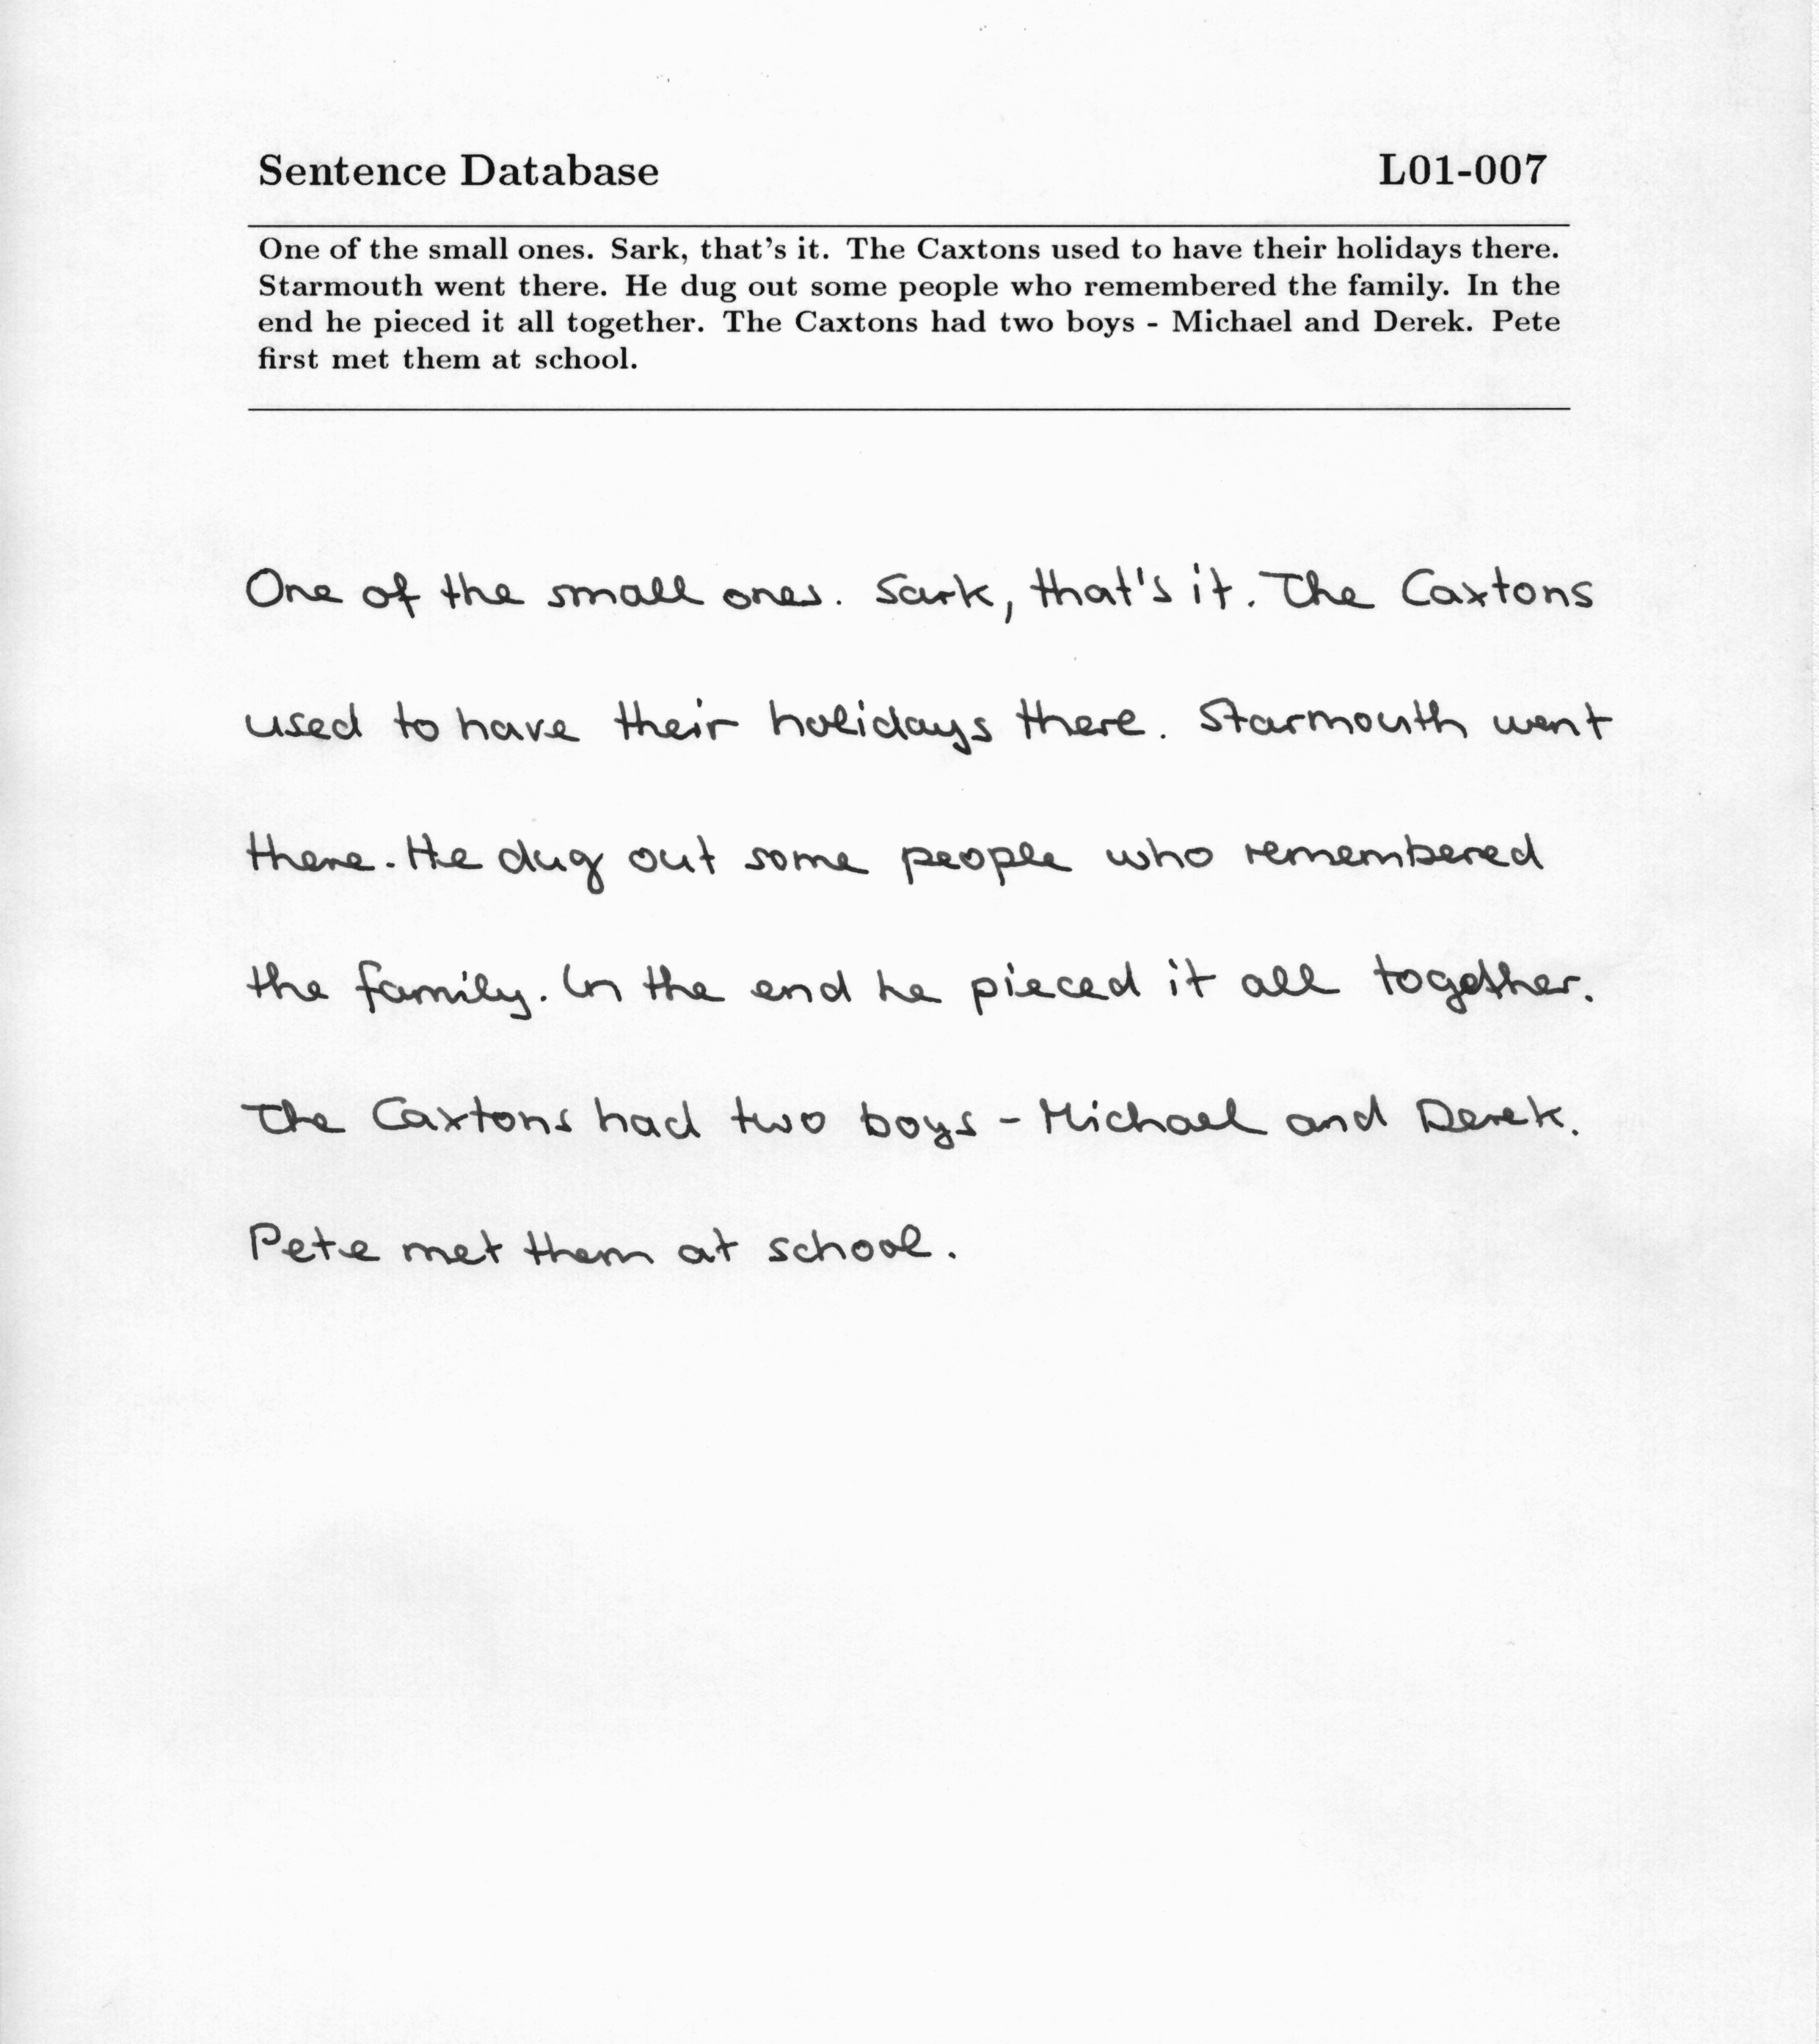 Sentence Database L01-007
One of the small ones. Sark, that's it. The Caxtons used to have their holidays there.
Starmouth went there. He dug out some people who remembered the family. In the
end he pieced it all together. The Caxtons had two boys - Michael and Derek. Pete
first met them at school.
One of the small ones. Sark, that's it. The Caxtons
used to have their holidays there. Starmouth went
there. He dug out some people who remembered
the family. In the end he pieced it all together.
The Caxtons had two boys - Michael and Derek.
Pete met them at school.